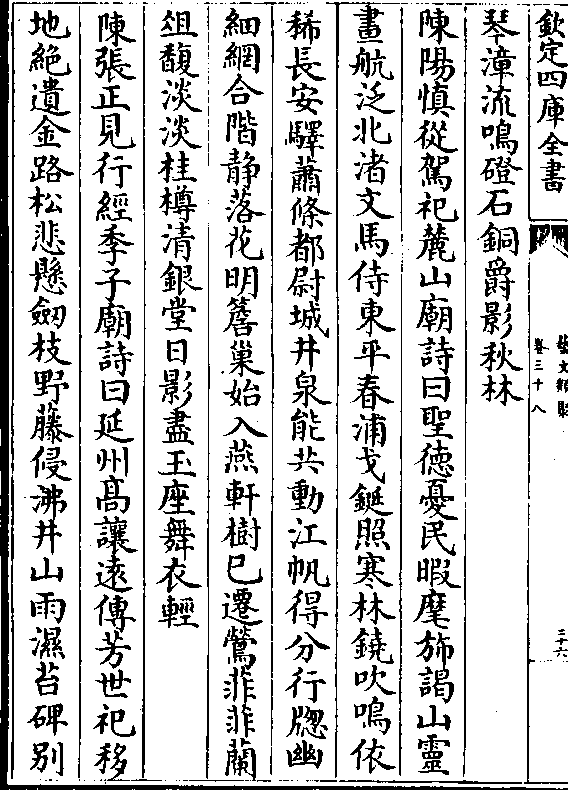 欽定四庫全書
藝文類聚
卷三十八
三十六
琴漳流鳴磴石銅爵影秋林
陳陽慎從駕祀麓山廟詩曰聖德憂民暇麾斾謁山靈
畫航泛北渚文馬侍東平春浦戈鋋照寒林鐃吹鳴依
稀長安驛蕭條都尉城井泉能共動江帆得分行牎幽
細網合階静落花明簷巢始入燕軒樹已遷鶯菲菲蘭
俎馥淡淡桂樽清銀堂日影盡玉座舞衣輕
陳張正見行經季子廟詩曰延州髙讓逺傳芳世祀移
地絶遺金路松悲懸劒枝野藤侵沸井山雨濕苔碑别